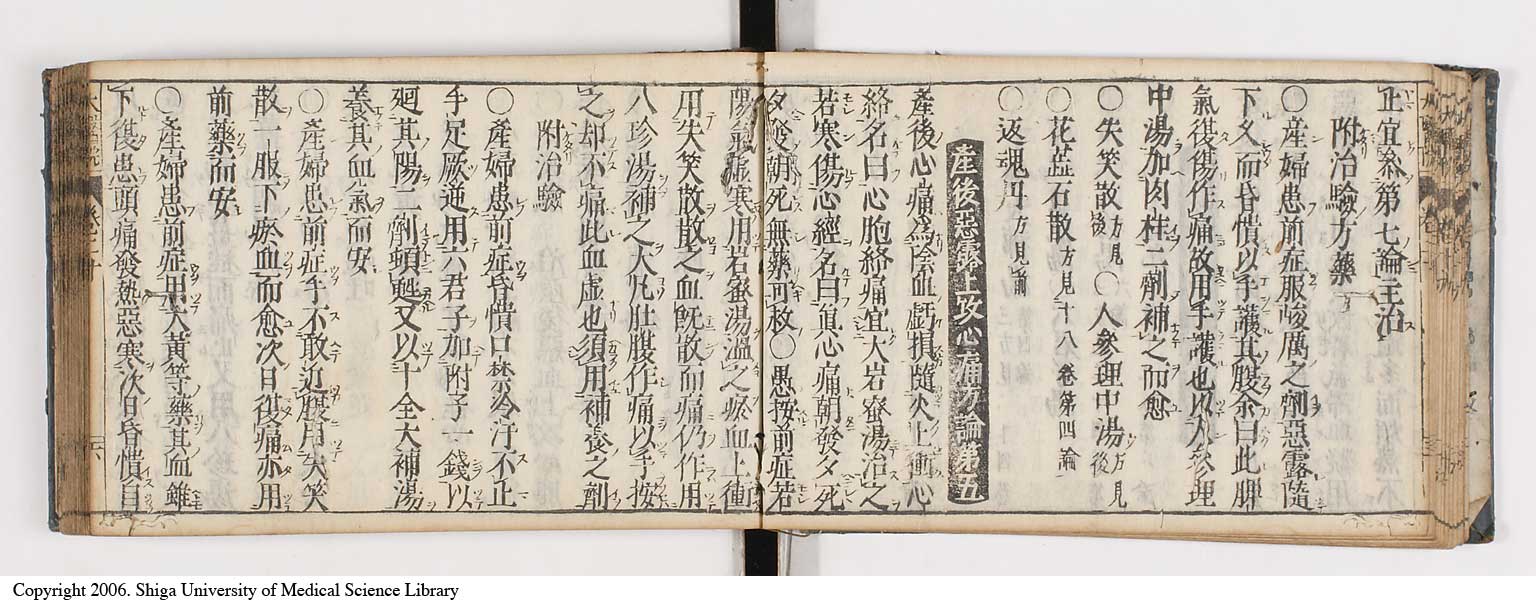 止宜叅第七論主治
附治驗方藥
〇產婦患前症服峻厲之劑惡露隨
下久而昏憒以手護其腹余曰此脾
氣復傷作痛故用手護也以人參理
中湯加肉桂二劑補之而愈
〇失笑散方見後〇人參理中湯方見後
〇花蕋石散方見十八卷第四論
〇返魂丹方見前
產後惡露上攻心痛方論第五
產後心痛爲陰血虧損隨火上衝心
絡名曰心胞絡痛宜大岩蜜湯治之
若寒傷心經名曰眞心痛朝發夕死
夕發朝死無藥可救〇愚按前症若
陽氣虛寒用岩蜜湯溫之瘀血上衝
用失笑散散之血既散而痛仍作用
八珍湯補之大凡肚腹作痛以手按
之却不痛此血虛也須用補養之劑
附治驗
〇產婦患前症昏憒口禁冷汗不止
手足厥逆用六君子加附子一錢以
廻其陽二劑頓甦又以十全大補湯
養其血氣而安
〇產婦患前症手不敢近腹用失笑
散一服下瘀血而愈次日復痛亦用
前藥而安
〇產婦患前症用大黃等藥其血雖
下復患頭痛發熱惡寒次日昏憒自
Copyright 2006. Shiga University of Medical Science Library